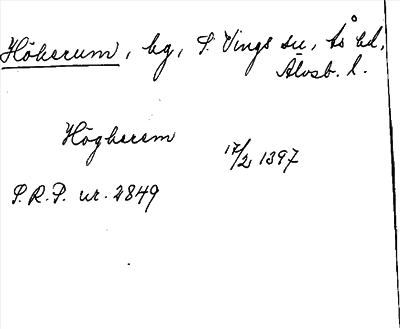 Hökerum, by, S. Vings sn, Ås hd,
Älvsb. l.
Högherem
17/2 1397
S.R.P. nr. 2849